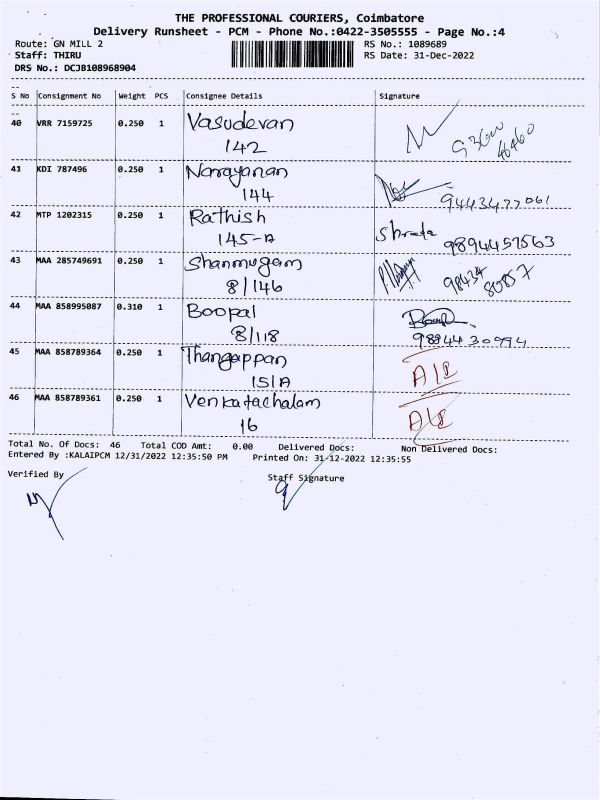 THE PROFESSIONAL COURIERS, Coimbatore
Delivery Runsheet - PCM - Phone No.:0422-3505555 - Page No.:4
Route: GN MILL 2 RS No.: 1089689
Staff: THIRU RS Date: 31-Dec-2022
DRS No.: DCJB108968904
S No Consignment No Weight PCS Consignee Details Signature
40 VRR 7159725 0.250 1 Vasudevan
142
41 KDI 787496 0.250 1 Narayanan
144 9443477061
42 MTP 1202315 0.250 1 Rathish
145-A 9894457563
43 MAA 285749691 0.250 1 Shanmugam
8/146 98434 80857
44 MAA 858995087 0.310 1 Boopal
8/118 9894430994
45 MAA 858789364 0.250 1 Thangappan
151A
46 MAA 858789361 0.250 1 Venkatachalam
16
Total No. Of Docs: 46 Total COD Amt: 0.00 Delivered Docs: Non Delivered Docs:
Entered By :KALAIPCM 12/31/2022 12:35:50 PM Printed On: 31-12-2022 12:35:55
Verified By Staff Signature